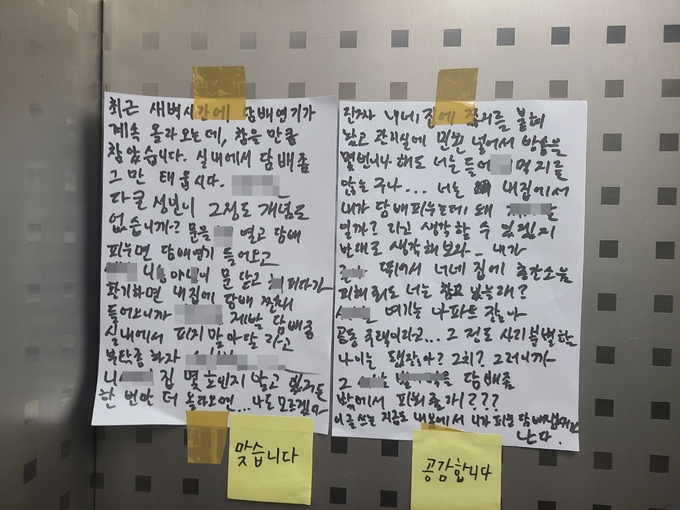 최근 새벽시간에 담배연기가
계속 올라오는데, 참을 만큼
참았습니다. 실내에서 담배좀
그만 태웁시다.
다큰 성인이 그정도 개념도
없습니까? 문을 열고 담배
피우면 담배연기 들어오고
문 닫고 피다가
환기하면 내집에 담배 찐내
들어오니까 제발 담배좀
실내에서 피지 말아달라고
부탁좀 하자
니 집 몇호인지 알고 있거든
한 번만 더 올라오면... 나도 모르겠다
진짜 니네 집에 쪽지를 붙혀
놨고 관리실에 민원 넣어서 방송을
몇번이나 해도 너는 들어 먹지를
않는구나... 너는 내집에서
내가 담배피우는데 왜
라고 생각할 수 있겠지
반대로 생각해보자_ 내가
너네 집에 층간소음
피해줘도 너는 참고 있을래?
얘기는 나파트 잖아
공동주택이라고... 그 정도 사리분별할
나이는 됐잖아? 그치? 그러니까
그 담배좀
밖에서 피워줄까???
이 글 쓰는 지금도 내 방에서 니가 피운 담배냄새가
난다.
맞습니다
공감합니다